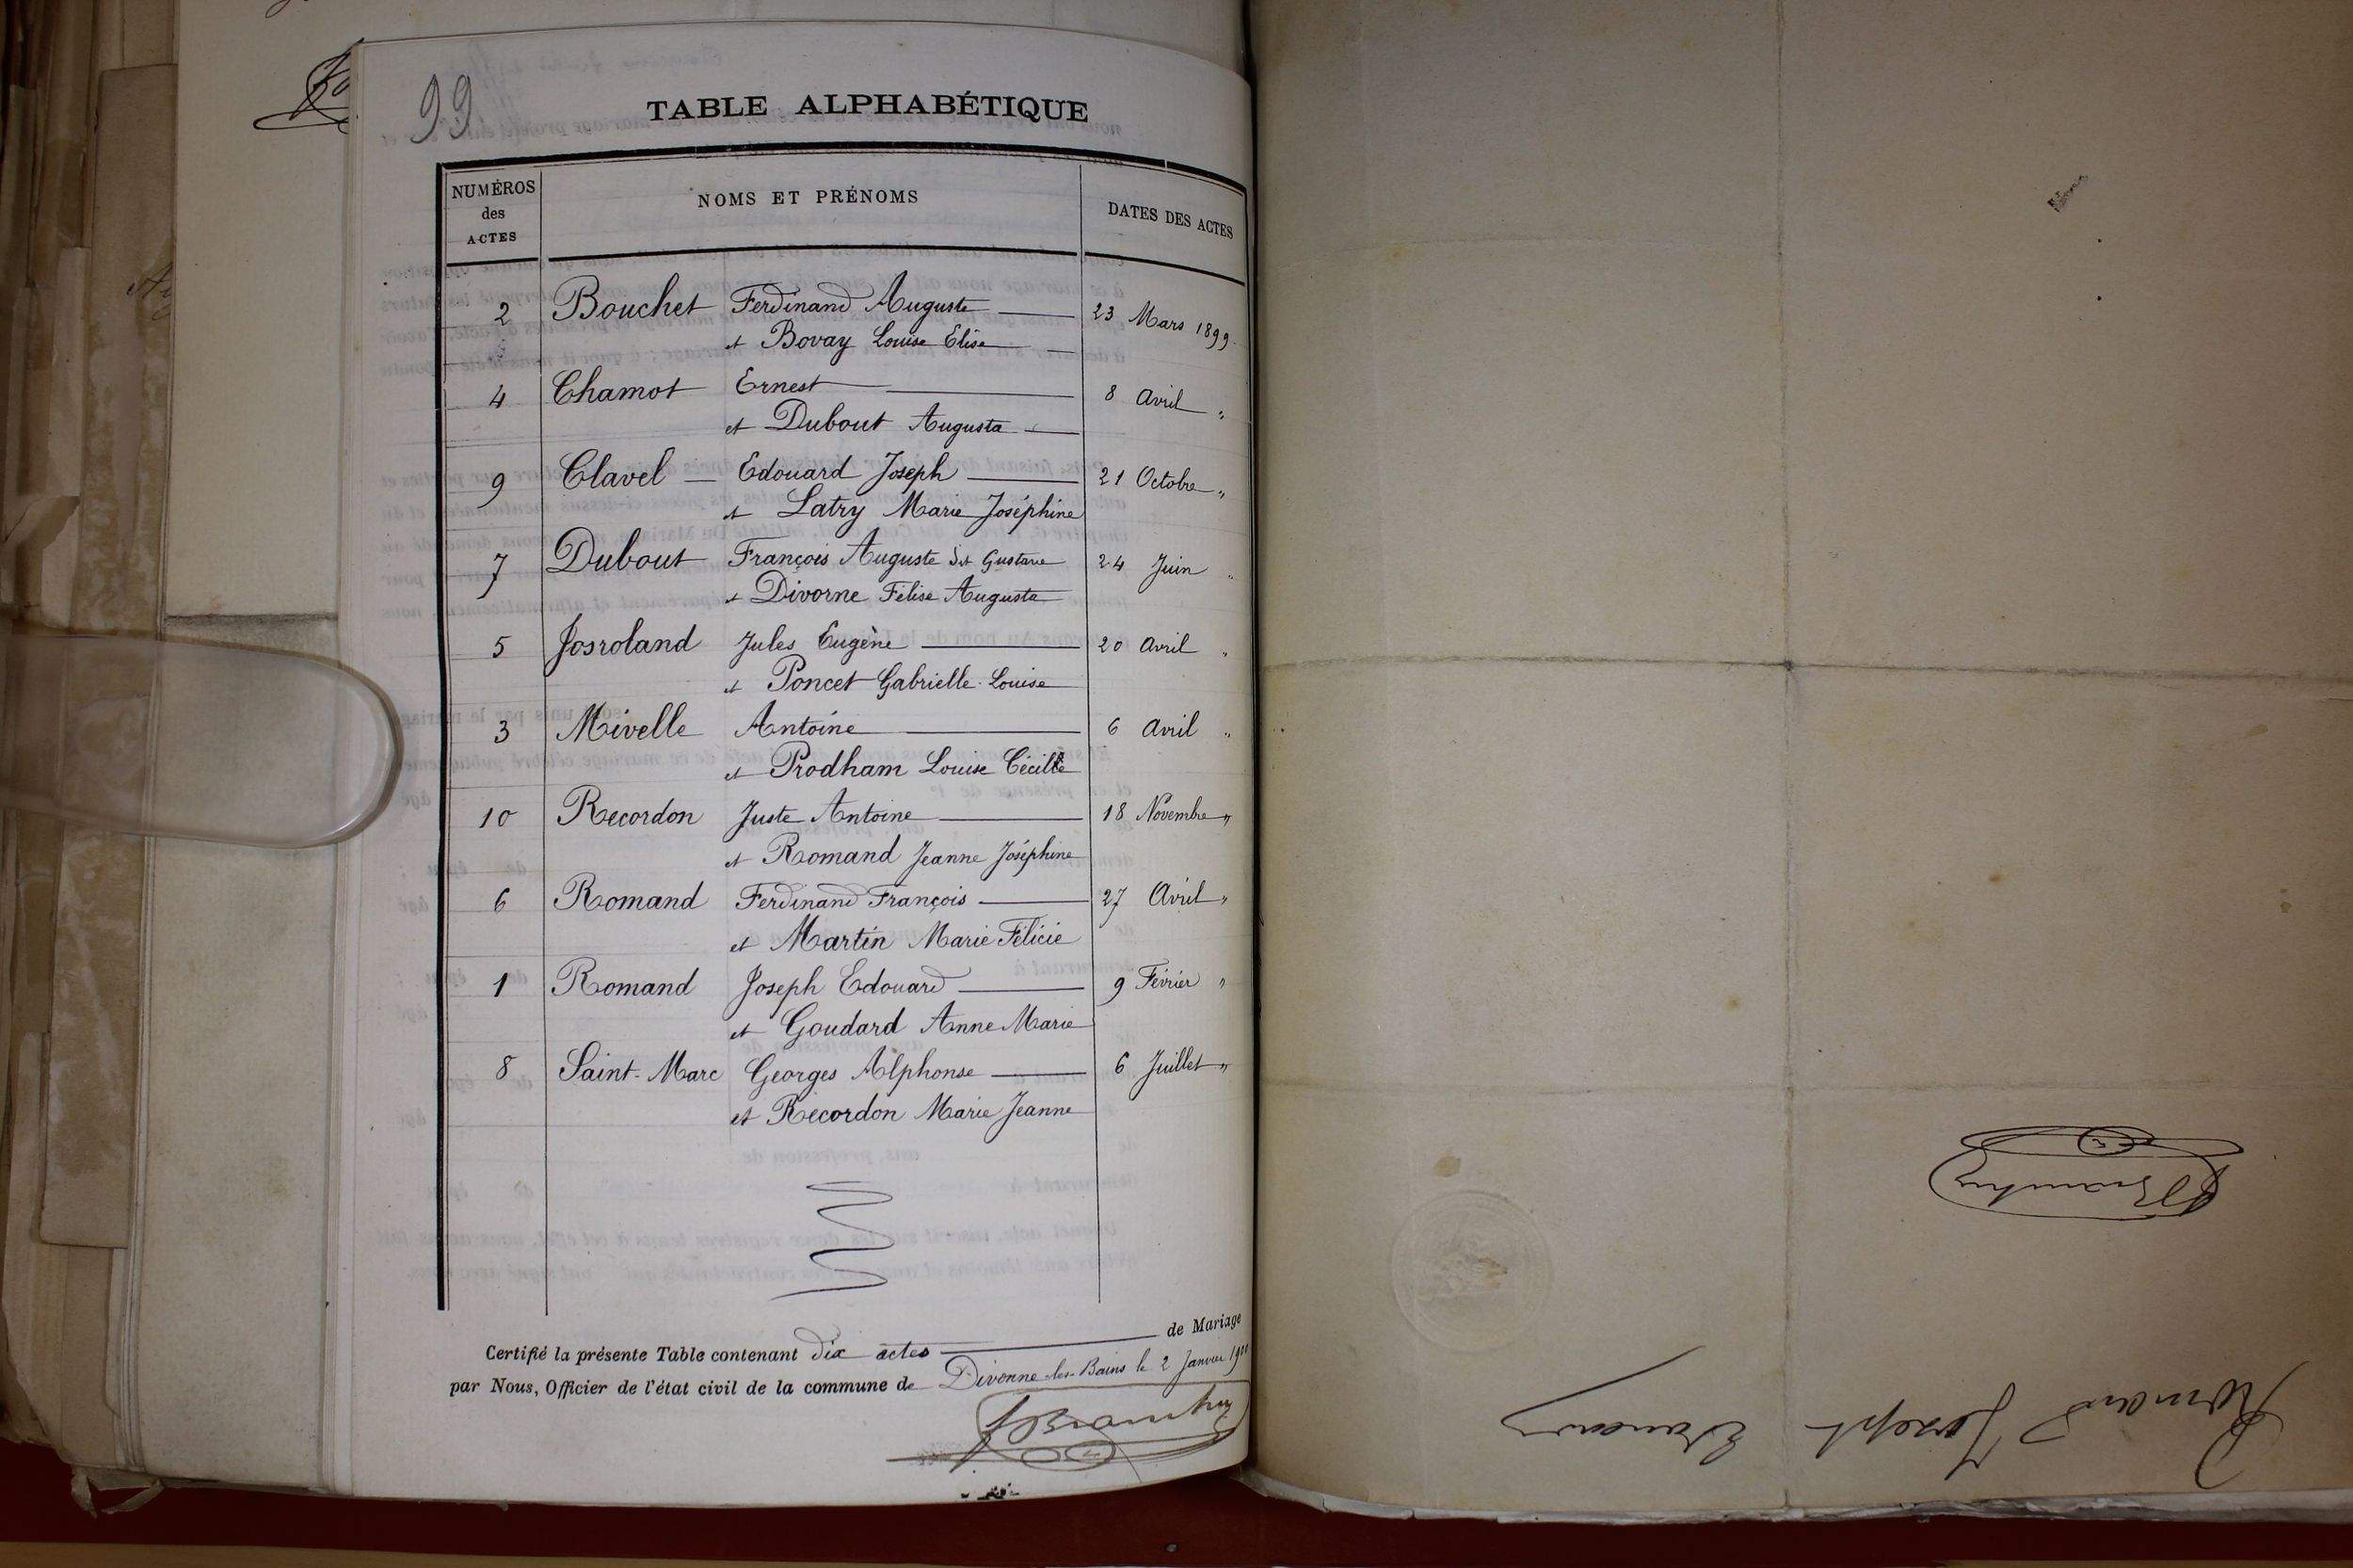 99
TABLE ALPHABÉTIQUE
NUMÉROS des ACTES NOMS ET PRÉNOMS DATES DES ACTES
2 Bouchet Ferdinand Auguste 23 Mars 1899
et Bovay Louise Elise
4 Chamot Ernest 8 Avril "
et Dubout Augusta
9 Clavel Edouard Joseph 21 Octobre "
et Latry Marie Joséphine
7 Dubout François Auguste dit Gustave 24 Juin "
et Divorne Félise Augusta
5 Josroland Jules Eugène 20 Avril "
et Poncet Gabrielle Louise
3 Mivelle Antoine 6 Avril "
et Prodham Louise Cécile
10 Recordon Juste Antoine 18 Novembre "
et Romand Jeanne Joséphine
6 Romand Ferdinand François 27 Avril "
et Martin Marie Félicie
1 Romand Joseph Edouard 9 Février "
et Goudard Anne Marie
8 Saint-Marc Georges Alphonse 6 Juillet "
et Recordon Marie Jeanne
Certifié la présente Table contenant dix actes de Mariage
par Nous, Officier de l'état civil de la commune de Divonne-les-Bains le 2 Janvier
Romand Joseph Edouard